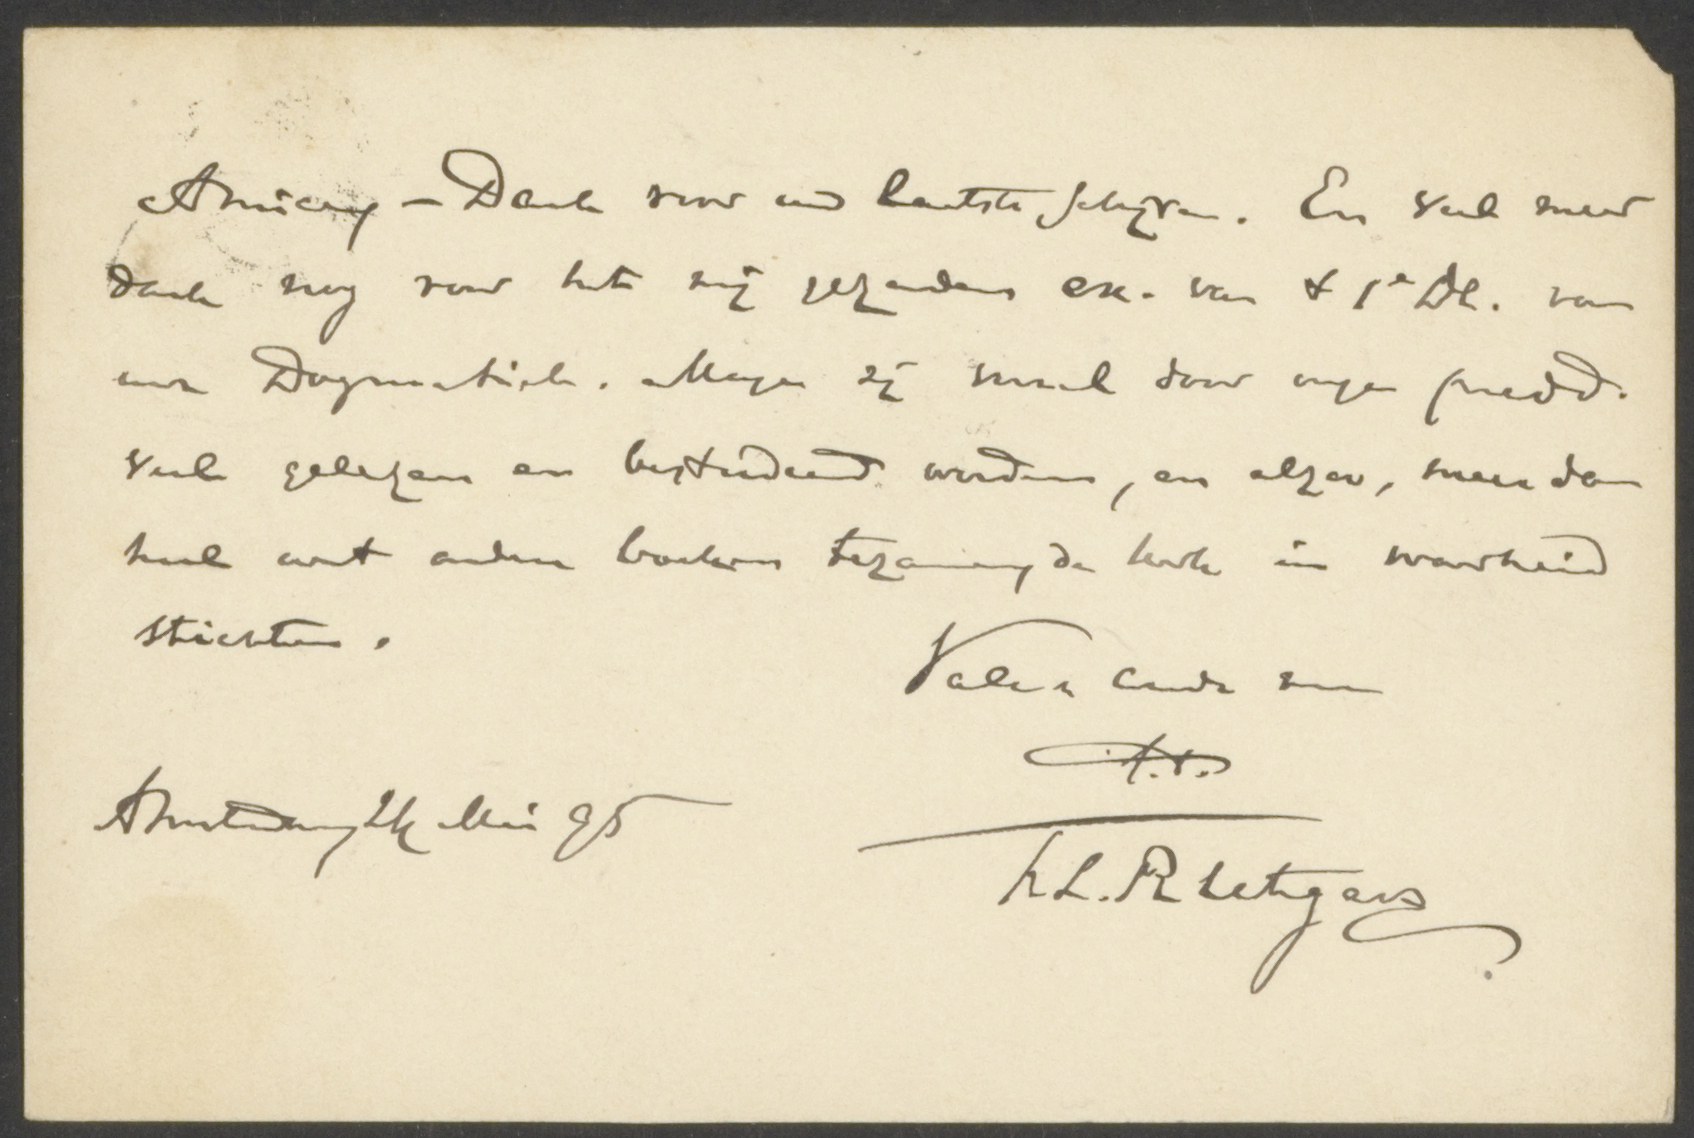 Amice, – Dank voor uw laatste schrijven. En veel meer
dank nog voor het mij gezonden ex. van 't 1e Dl. van
uwe Dogmatiek. Moge zij vooral door onze predd.
veel gelezen en bestudeerd worden, en alzoo, meer dan
heel wat andere boeken tezamen, de kerk in waarheid
stichten.
Vale
t.t.
Amsterdam, Mei 95
F.L. Rutgers